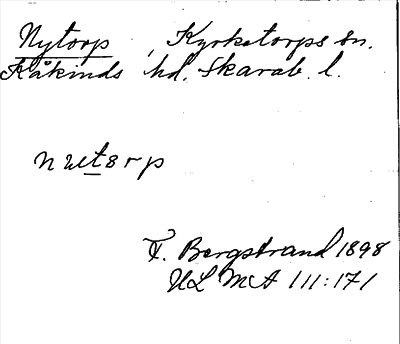 Nytorp, Kyrketorps sn.
Kåkinds hd. Skarab. l.
F. Bergstrand 1898
ULMA 111:171